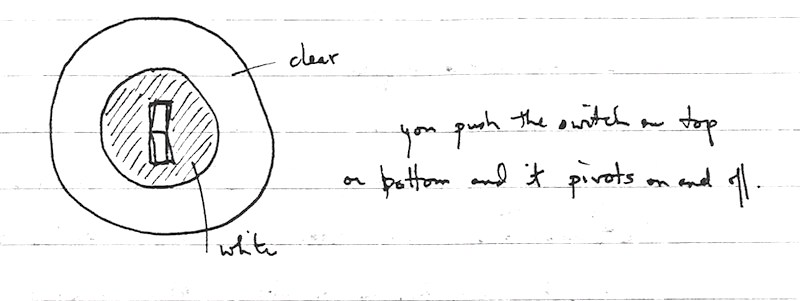 clear
you push the switch on top
or bottom and it pivots on and off.
white